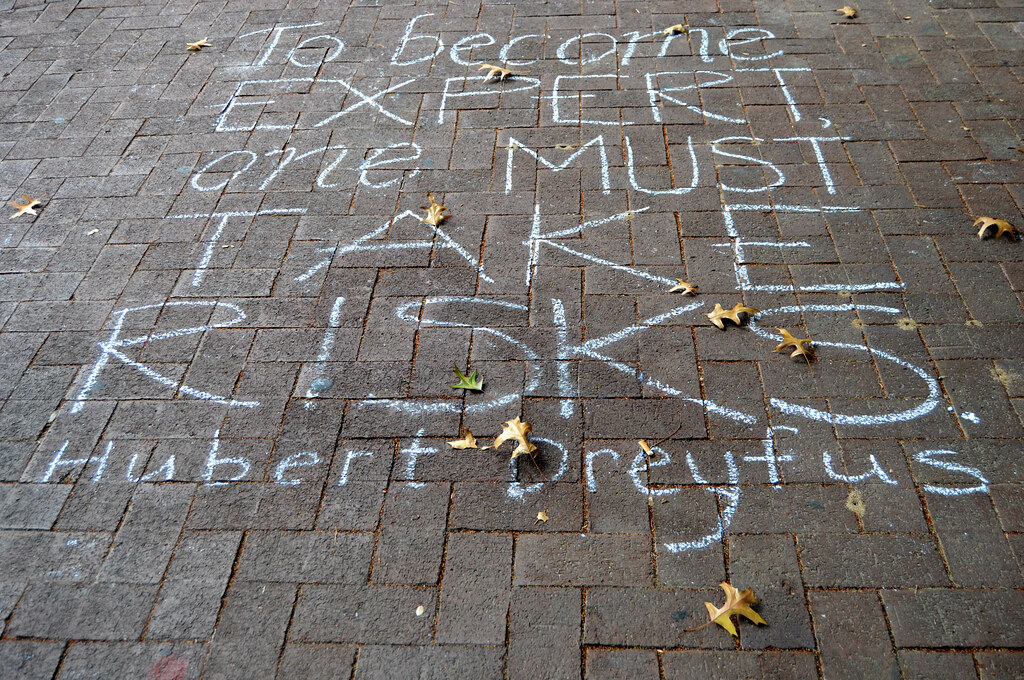 To become
EXPERT,
one MUST
TAKE
RISKS.
Hubert Dreyfus